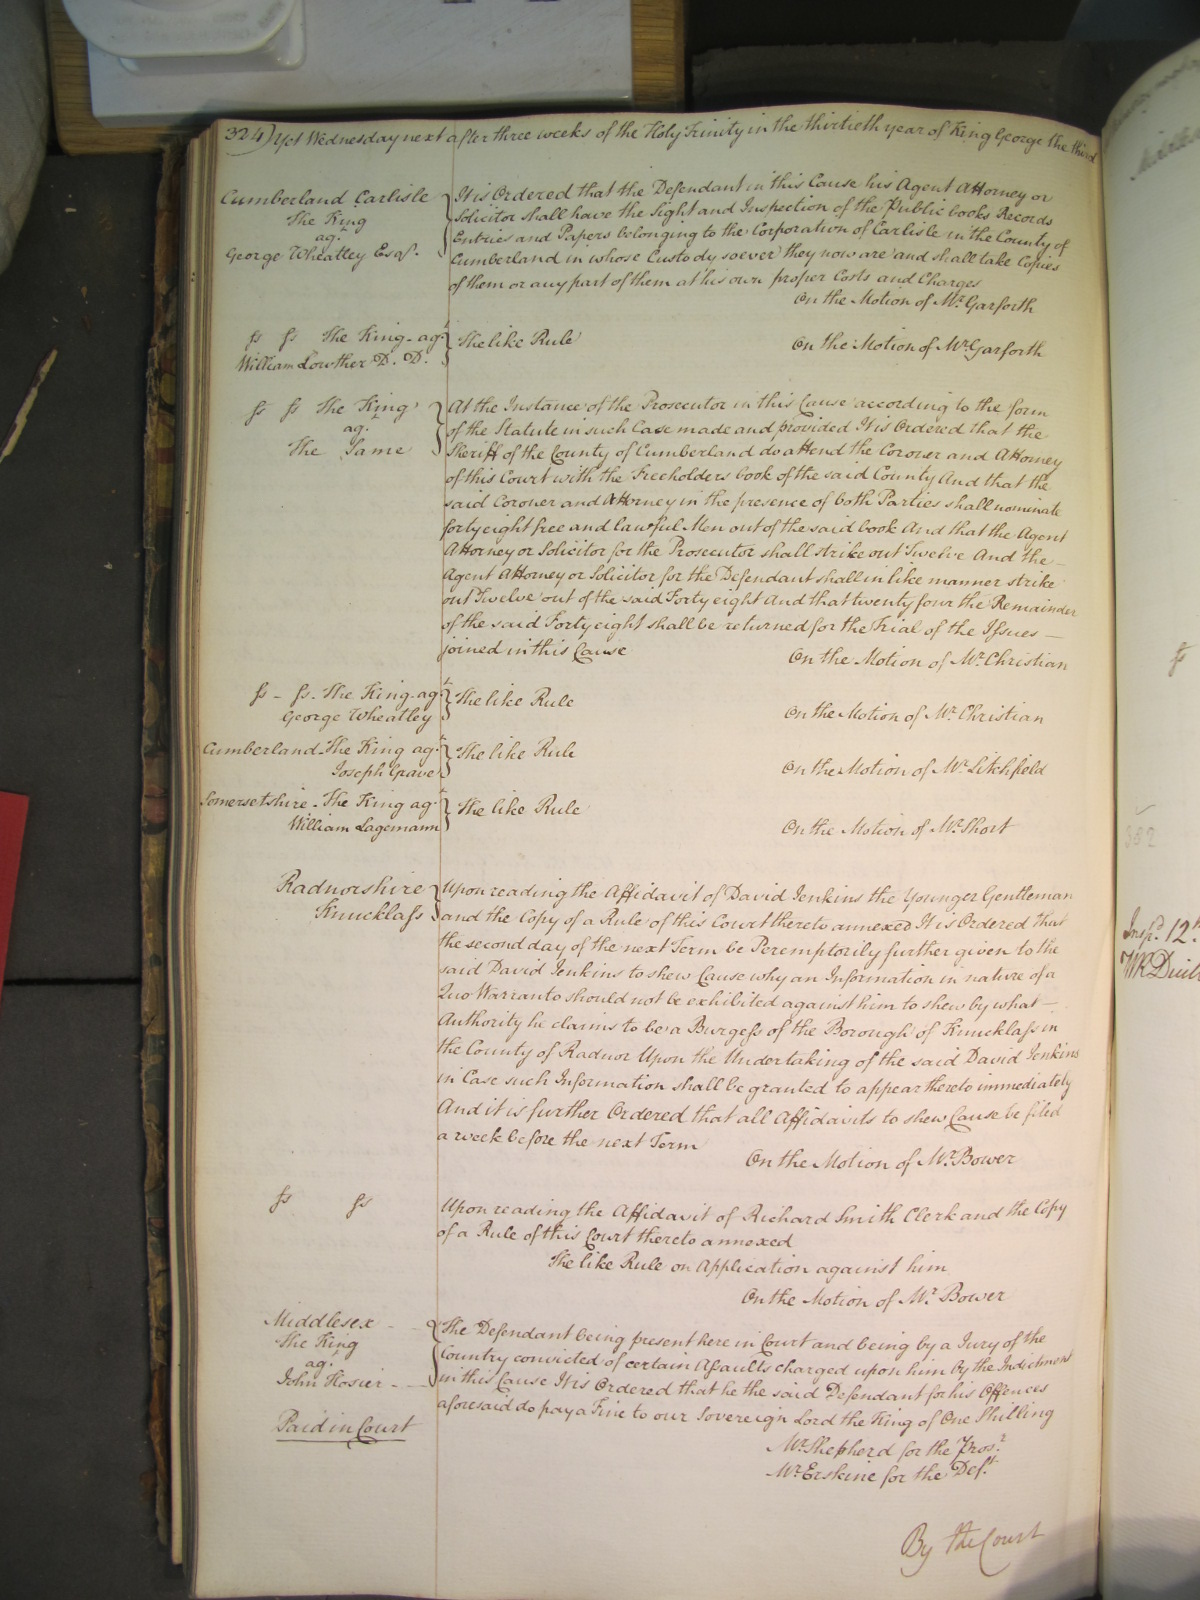 324) Yet Wednesday next after three weeks of the Holy Trinity in the thirtieth year of King George the third
Cumberland Carlisle
The King
agt
George Wheatley Esqr.
It is Ordered that the Defendant in this Cause his Agent Attorney or
Solicitor shall have the Sight and Inspection of the Public books Records
Entries and Papers belonging to the Corporation of Carlisle in the County of
Cumberland in whose Custody soever they now are and shall take Copies
of them or any part of them at his own proper Costs and Charges
On the Motion of Mr. Garforth
ss ss The King agt
William Lowther D. D.
The like Rule
On the Motion of Mr. Garforth
ss ss The King
agt
The Same
At the Instance of the Prosecutor in this Cause according to the form
of the Statute in such Case made and provided It is Ordered that the
Sheriff of the County of Cumberland do attend the Coroner and Attorney
of this Court with the Freeholders book of the said County And that the
said Coroner and Attorney in the presence of both Parties shall nominate
forty eight free and lawful Men out of the said book And that the Agent
Attorney or Solicitor for the Prosecutor shall strike out Twelve And the
Agent Attorney or Solicitor for the Defendant shall in like manner strike
out Twelve out of the said Forty eight And that twenty four the Remainder
of the said Forty eight shall be returned for the Trial of the Issues
joined in this Cause
On the Motion of Mr. Christian
ss - ss. The King agt
George Wheatley
The like Rule
On the Motion of Mr. Christian
Cumberland - The King agt
Joseph Graver
The like Rule
On the Motion of Mr. Litchfield
Somersetshire - The King agt
William Lagemann
The like Rule
On the Motion of Mr. Short
Radnorshire
Knucklass
Upon reading the Affidavit of David Jenkins the Younger Gentleman
and the Copy of a Rule of this Court thereto annexed It is Ordered that
the second day of the next Term be Peremptorily further given to the
said David Jenkins to shew Cause why an Information in nature of a
Quo Warranto should not be exhibited against him to shew by what
Authority he claims to be a Burgess of the Borough of Knucklass in
the County of Radnor Upon the Undertaking of the said David Jenkins
in Case such Information shall be granted to appear thereto immediately
And it is further Ordered that all Affidavits to shew Cause be filed
a week before the next Term
On the Motion of Mr. Bower
ss ss
Upon reading the Affidavit of Richard Smith Clerk and the Copy
of a Rule of this Court thereto annexed
The like Rule on Application against him
On the Motion of Mr. Bower
Middlesex
The King
agt
John Hosier
Paid in Court
The Defendant being present here in Court and being by a Jury of the
Country convicted of certain Assaults charged upon him by the Indictment
in this Cause It is Ordered that he the said Defendant for his Offences
aforesaid do pay a Fine to our Sovereign Lord the King of One Shilling
Mr. Shepherd for the Prosr.
Mr. Erskine for the Deft.
By the Court